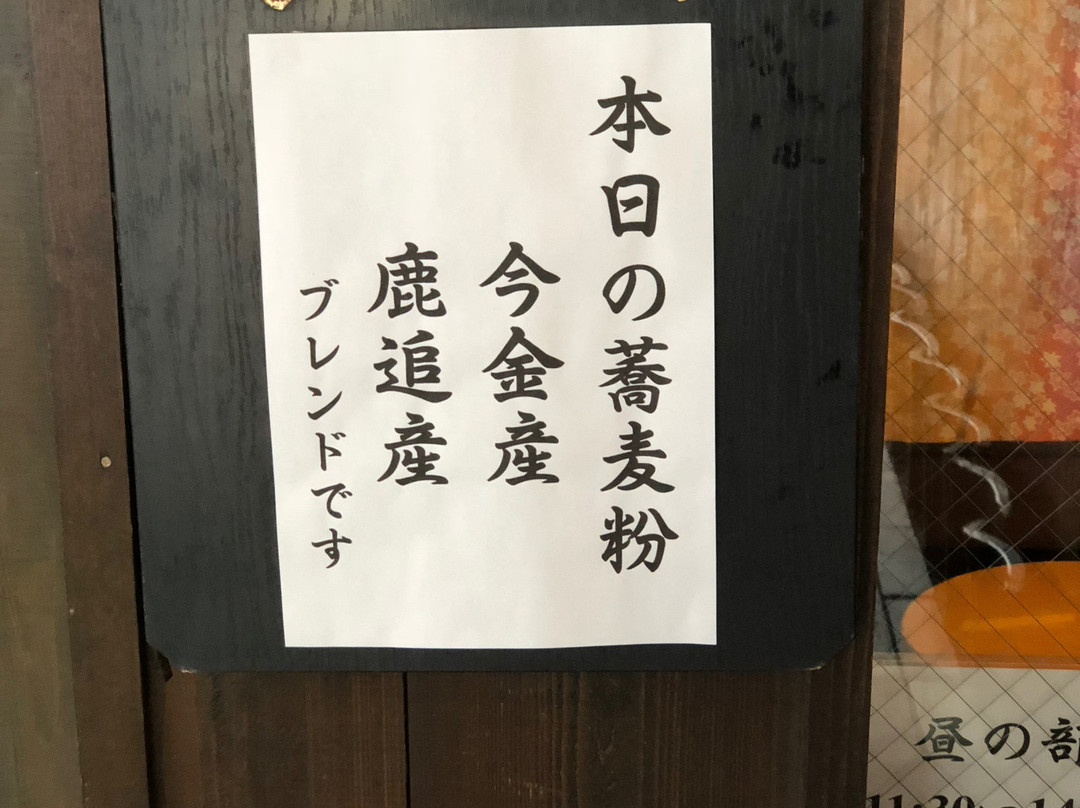 本日の蕎麦粉
今金産
鹿追産
ブレンドです
昼の部